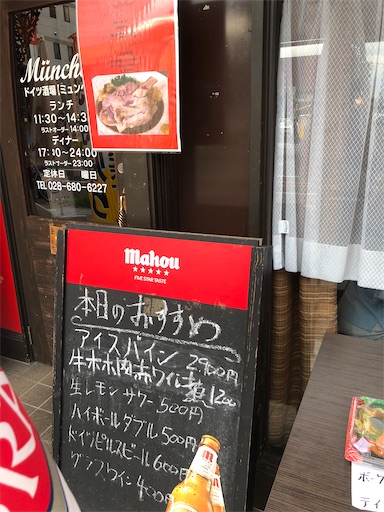 Münch
ドイツ酒場[ミュンヘ
ランチ
11:30～14:3
ラストオーダー14:00
ディナー
17:30～24:00
ラストオーダー23:00
定休日 日曜日
TEL 028-680-6227
mahou
★★★★★
FIVE STAR TASTE
本日のおすすめ
アイスバイン 2900円
牛ホホ肉赤ワイン煮 1200
生レモンサワー 500円
ハイボールダブル 500円
ドイツピルスビール 600円
グラスワイン 400
ポー
ティ